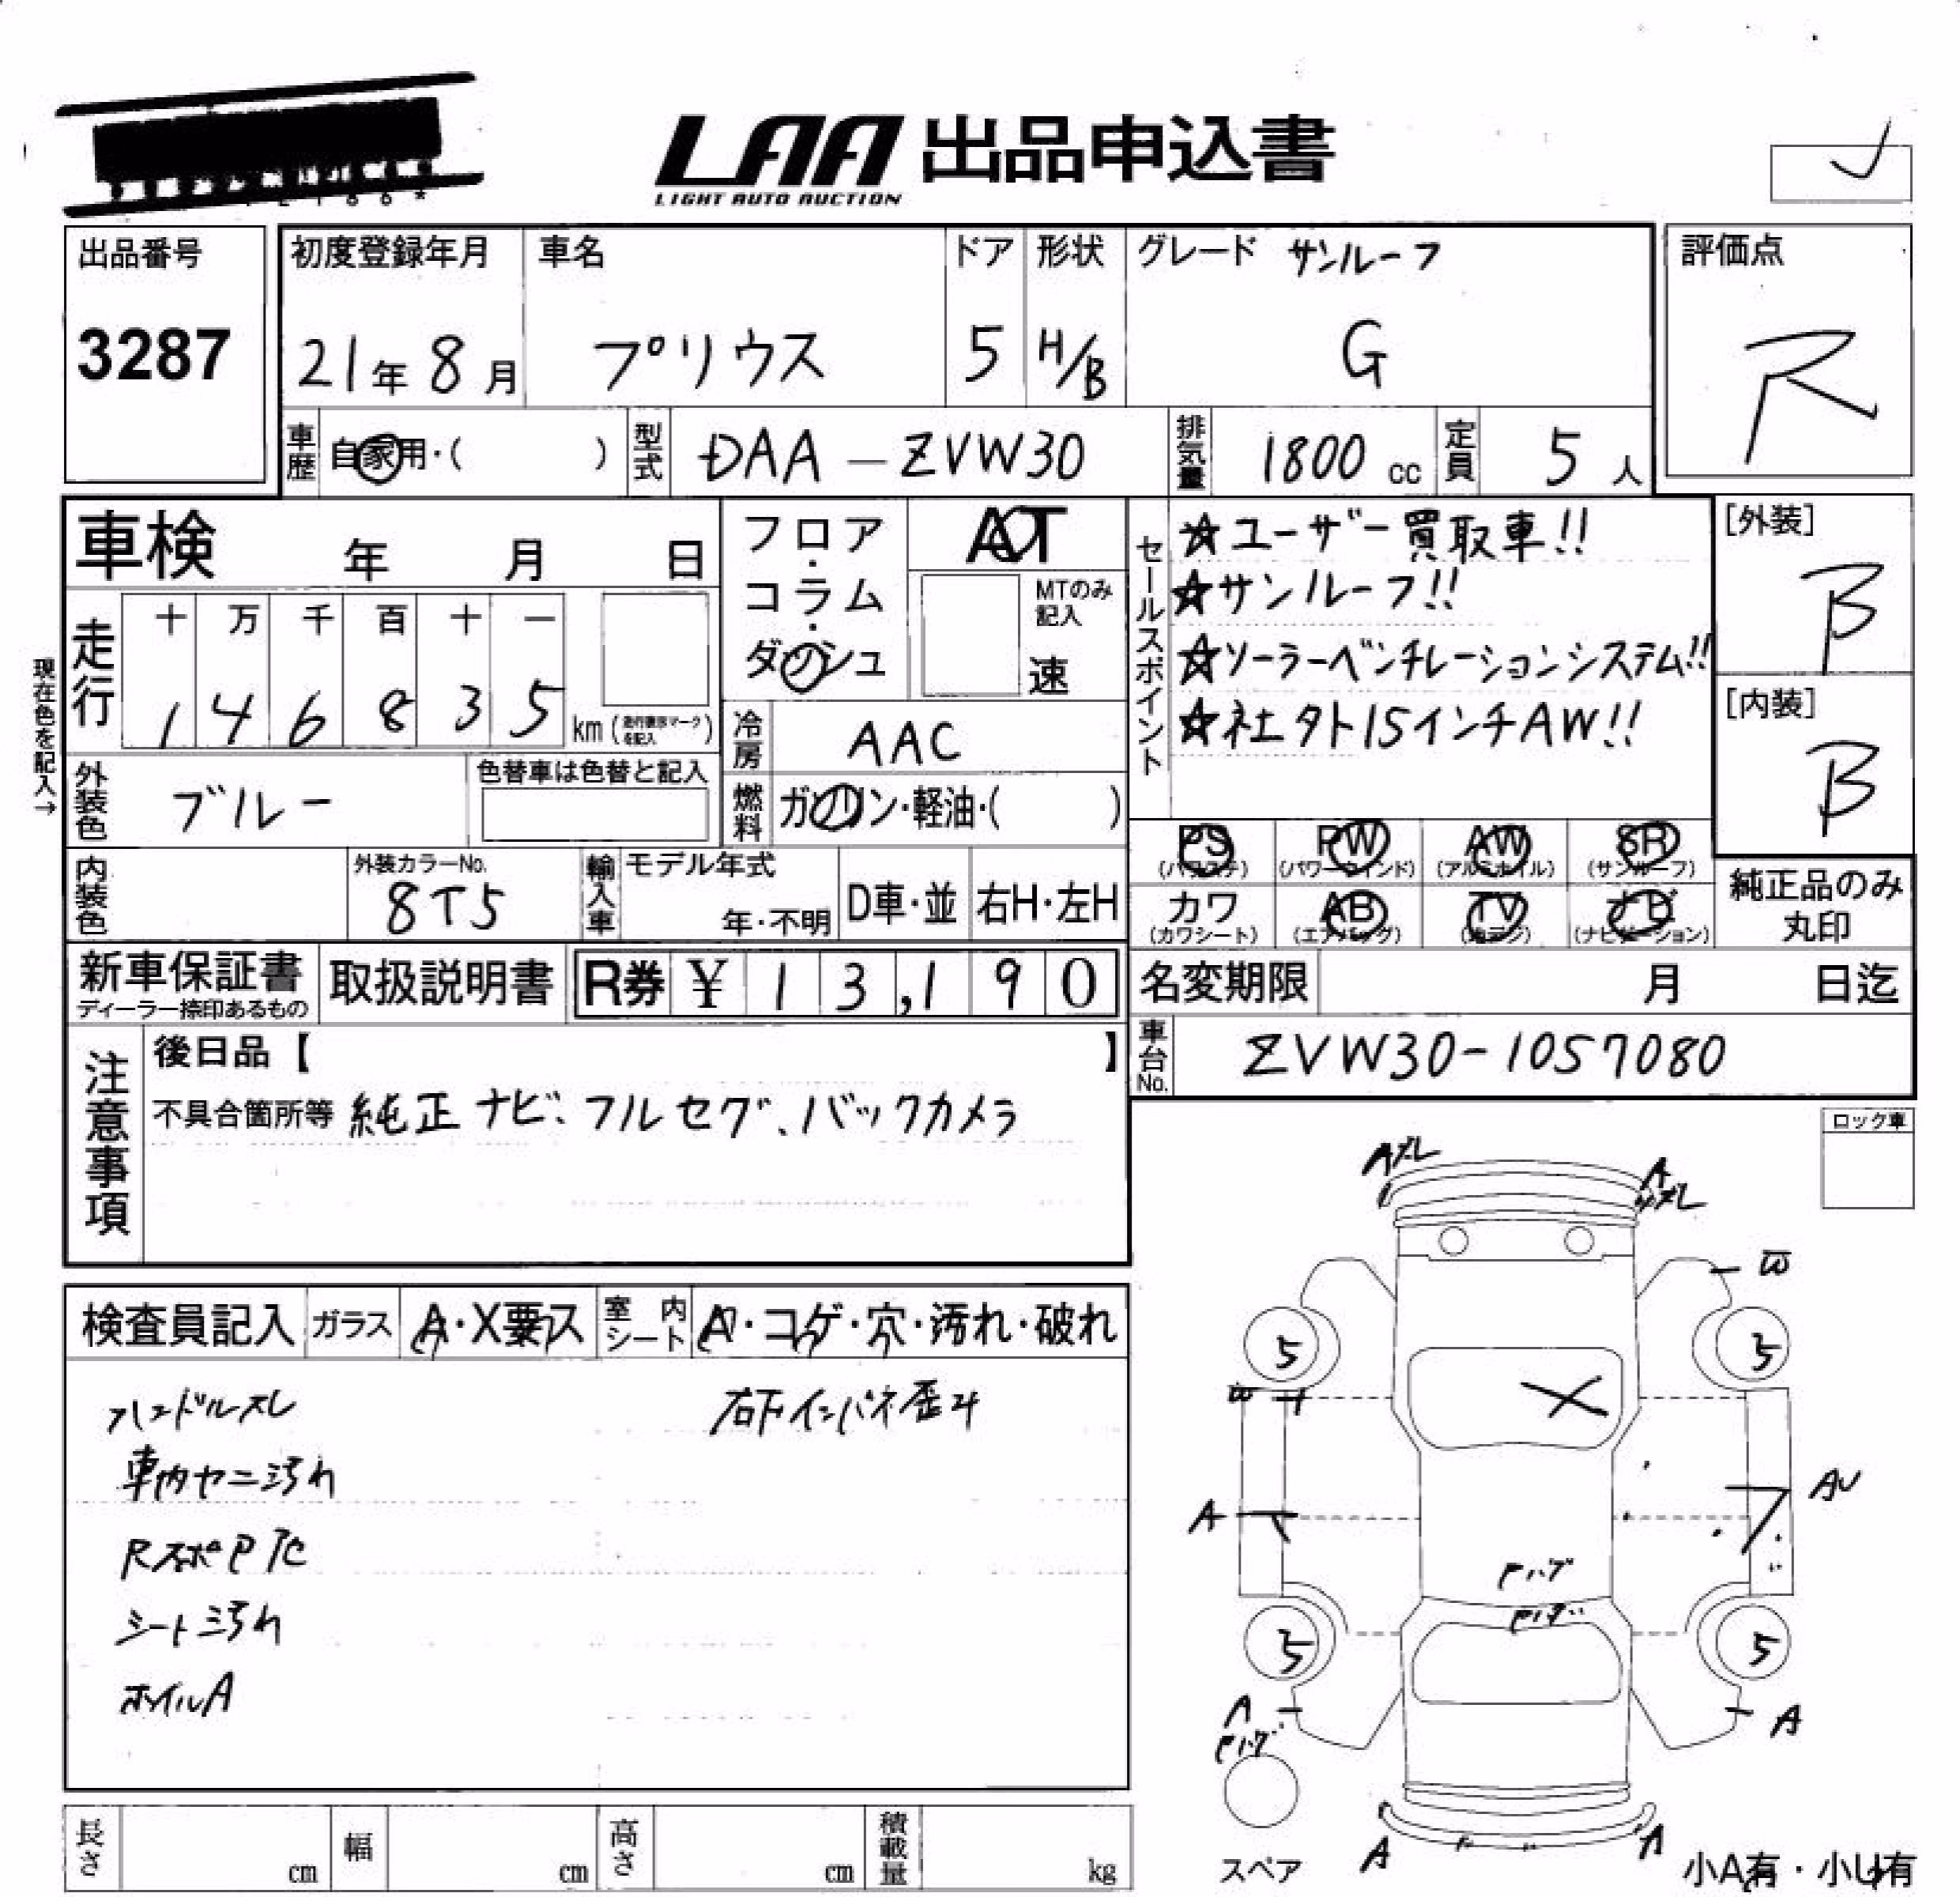 LAA 出品申込書
LIGHT AUTO AUCTION
出品番号
3287
初度登録年月
21年 8月
車名
プリウス
ドア
5
形状
H/B
グレード サンルーフ
G
評価点
R
車歴
自家用・( )
型式
DAA-ZVW30
排気量
1800 cc
定員
5 人
車検 年 月 日
フロア・コラム・ダッシュ
AT
MTのみ記入
速
セールスポイント
☆ユーザー買取車!!
☆サンルーフ!!
☆ソーラーベンチレーションシステム!!
☆社外15インチAW!!
[外装]
B
[内装]
B
現在色を記入→
走行
十 万 千 百 十 一
1 4 6 8 3 5
km
冷房
AAC
外装色
ブルー
色替車は色替と記入
燃料
ガソリン・軽油・( )
PS (パワステ)
PW (パワーウィンド)
AW (アルミホイル)
SR (サンルーフ)
カワ (カワシート)
AB (エアバッグ)
TV (地デジ)
ナビ (ナビゲーション)
純正品のみ
丸印
内装色
外装カラーNo.
8T5
輸入車
モデル年式
年・不明
D車・並
右H・左H
新車保証書
ディーラー捺印あるもの
取扱説明書
R券 ¥ 13,190
名変期限 月 日迄
車台No.
ZVW30-1057080
注意事項
後日品【 】
不具合箇所等 純正ナビ、フルセグ、バックカメラ
ロック車
検査員記入
ガラス
A・X要ス
室内シート
A・コゲ・穴・汚れ・破れ
ハンドルスレ
右下インパネ歪み
車内ヤニ汚れ
シート汚れ
ホイルA
A
W
5
5
W
X
A
AU
5
5
A
A
スペア
A
A
小A有・小U有
長さ cm
幅 cm
高さ cm
積載量 kg